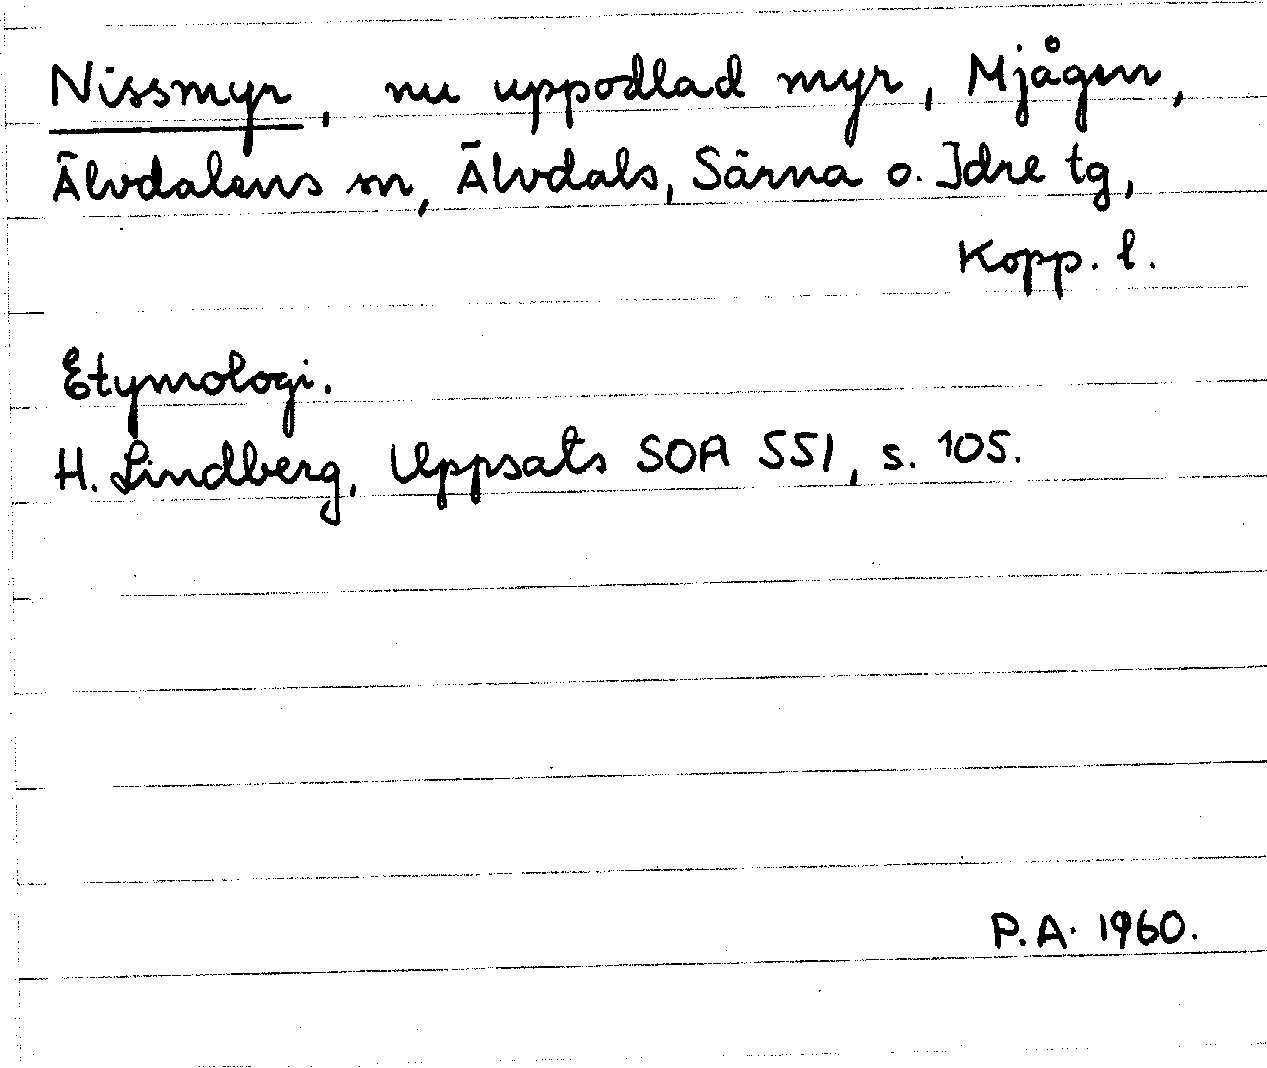 Nissmyr, nu uppodlad myr, Mjågen,
Älvdalens sn, Älvdals, Särna o. Idre tg,
Kopp. l.
Etymologi.
H. Lindberg, Uppsats SOA 551, s. 105.
P.A. 1960.